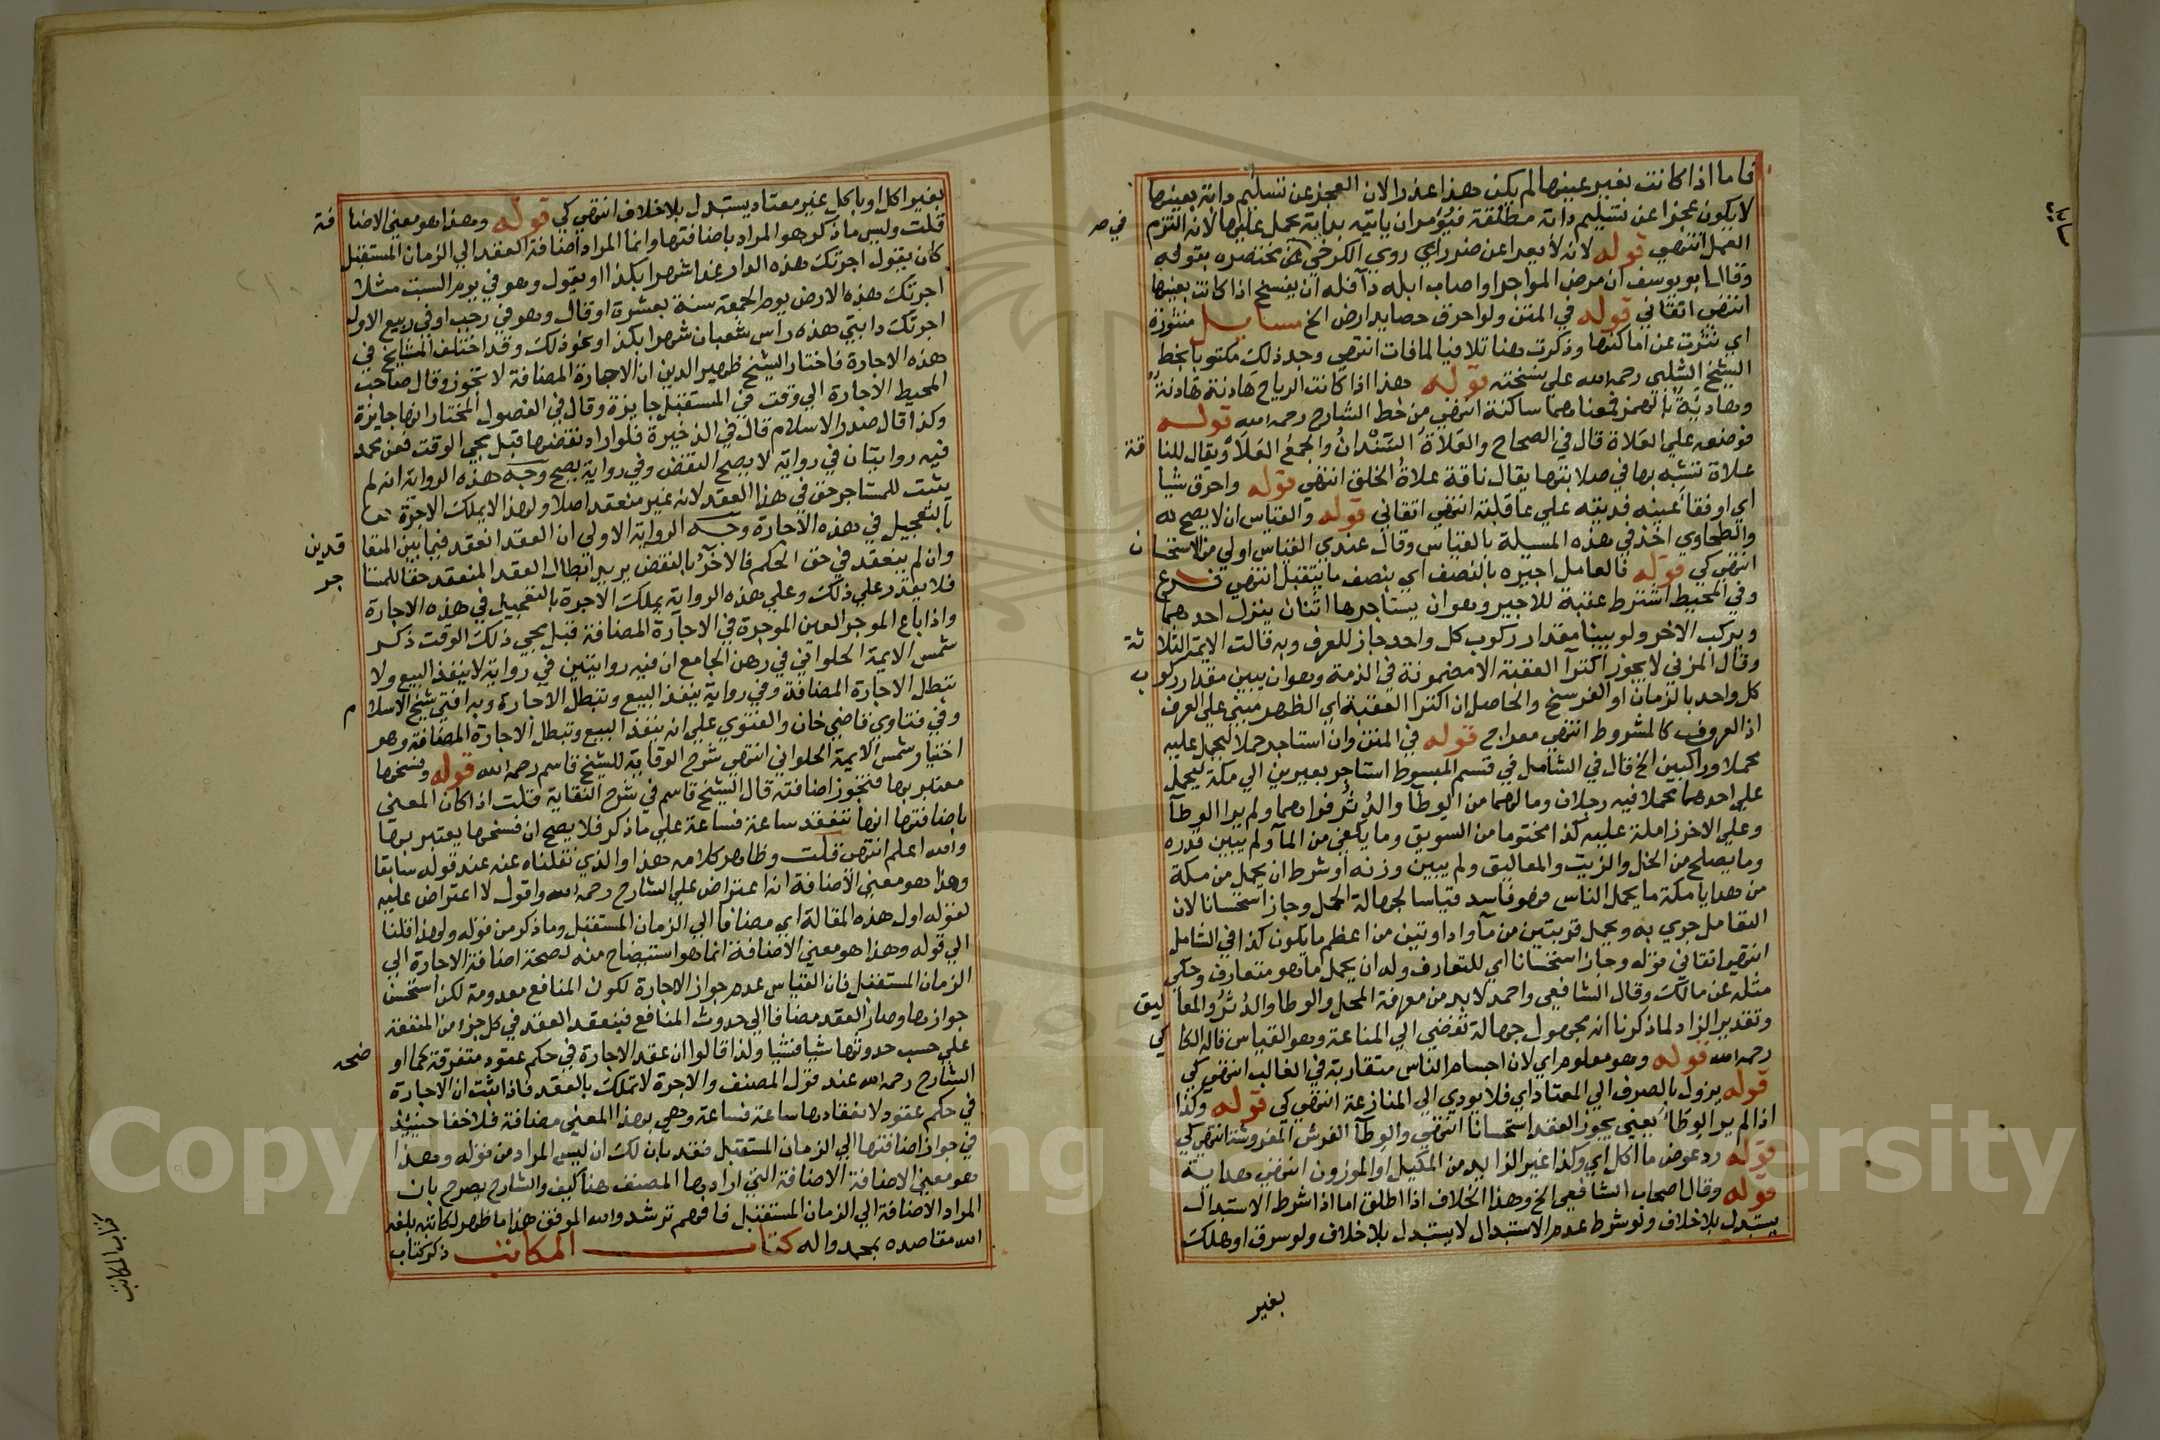 فاما اذا كانت بغير عينها لم يكن هذا عذرا لان العجز عن تسليم دابة بعينها
لا يكون عجزا عن تسليم دابة مطلقة فيؤمر ان ياتيه بدابة يحمل عليها لانه التزم
العمل انتهى قوله لانه لا يعرا عن ضرر اي روي الكرخي في مختصره بقوله
وقال ابو يوسف ان مرض المواجر او اصاب ابله داء فله ان يفسخ اذا كانت بعينها
انتهى اتقاني قوله في المتن ولو احرق حصايد ارض الخ مسايل منثورة
اي نثرت عن اماكنها وذكرت هنا تلافيا لما فات انتهى وجد ذلك مكتوبا بخط
الشيخ الشلبي رحمه الله على نسخته قوله هذا اذا كانت الرياح هادنة هادنة
وهادئة بالهمز فمعناهما ساكنة انتهى من خط الشارح رحمه الله قوله
فوضعه على العلاة قال في الصحاح والعلاة السندان والجمع العلا ويقال للنا قة
علاة تشبه بها في صلابتها يقال ناقة علاة الخلق انتهى قوله واحرق شيا
اي او فقأ عينه فديته على عاقلته انتهى اتقاني قوله والقياس ان لا يصح له
والطحاوي اخذ في هذه المسلة بالقياس وقال عندي القياس اولى من الاستحسا ن
انتهى كي قوله فالعامل اجيره بالنصف اي بنصف ما يتقبل انتهى فرع
وفي المحيط اشترط عقبة للاجير وهو ان يستاجرها اثنان ينزل احدهما
ويركب الاخر ولو يبينا مقدار ركوب كل واحد جاز للعرف وبه قالت الايمة الثلا ثة
وقال المزني لا يجوز اكترا العقبة الا مضمونة في الذمة وهو ان يبين مقدار ركو ب
كل واحد بالزمان او الفرسخ والحاصل ان اكترا العقبة اي الظهر مبني على العرف
اذ المعروف كالمشروط انتهى معراج قوله في المتن وان استاجر حملا ليحمل عليه
محملا وراكبين الخ قال في الشامل في قسم المبسوط استاجر بعيرين الي مكة ليحمل
على احدهما محملا فيه رجلان وما لهما من الوطآ والدثر فراهما ولم ير الوطآ
وعلى الاخر زاملة عليه كذا مختوما من السويق وما يكفي من المآ ولم يبين قدره
وما يصلح من الخل والزيت والمعاليق ولم يبين وزنه او شرط ان يحمل من مكة
من هدايا مكة ما يحمل الناس فهو فاسد قياسا لجهالة الحمل وجاز استحسانا لان
التعامل جري به ويحمل قربتين من مآ واداوتين من اعظم ما يكون كذا في الشامل
انتهى اتقاني قوله وجاز استحسانا اي للتعارف وله ان يحمل ما هو متعارف وحكي
مثله عن مالك وقال الشافعي واحمد لا بد من معرفة المحل والوطا والدثر والمعا ليق
وتقدير الزاد لما ذكرنا انه مجهول جهالة تفضي الي المنازعة وهو القياس قاله الكا كي
رحمه الله قوله وهو معلوم اي لان اجسام الناس متقاربة في الغالب انتهى كي
قوله يزول بالصرف الي المعتاد اي فلا يودي الي المنازعة انتهى كي قوله وكذا
اذا لم ير الوطآ يعني يجوز العقد استحسانا انتهى والوطآ الفرش المفروشة انتهى كي
قوله رد عوض ما اكل اي وكذا غير الزاد من المكيل او الموزون انتهى هداية
قوله وقال اصحاب الشافعي الخ وهذا الخلاف اذا اطلق اما اذا شرط الاستبدال
يستبدل بلا خلاف ولو شرط عدم الاستبدال لا يستبدل بلا خلاف ولو سرق او هلك
بغير
بغير اكل او باكل غير معتاد يستبدل بلا خلاف انتهى كي قوله وهذا هو معنى الاضا فة
قلت وليس ما ذكر هو المراد باضافتها وانما المراد اضافة العقد الي الزمان المستقبل
كان يقول اجرتك هذه الدار غدا شهرا بكذا او يقول وهو في يوم السبت مثلا
اجرتك هذه الارض يوم الجمعة سنة بعشرة او قال وهو في رجب او في ربيع الاول
اجرتك دابتي هذه راس شعبان شهرا بكذا او نحو ذلك وقد اختلف المشايخ في
هذه الاجارة فاختار الشيخ ظهير الدين ان الاجارة المضافة لا تجوز وقال صاحب
المحيط الاجارة الي وقت في المستقبل جايزة وقال في الفصول المختار انها جايزة
وكذا قال صدر الاسلام قال في الذخيرة فلو اراد نقضها قبل مجي الوقت فعن محمد
فيه روايتان في رواية لا يصح النقض وفي رواية يصح وجه هذه الرواية انه لم
يثبت للمستاجر حق في هذا العقد لانه غير منعقد اصلا ولهذا لا يملك الاجرة
بالتعجيل في هذه الاجارة وجه الرواية الاولى ان العقد انعقد فيما بين المتعا قدين
وان لم ينعقد في حق الحكم فالآخر بالنقض يريد ابطال العقد المنعقد حقا للمستا جر
فلا يقدر على ذلك وعلى هذه الرواية يملك الاجرة بالتعجيل في هذه الاجارة
واذا باع الموجر العين الموجرة في الاجارة المضافة قبل مجي ذلك الوقت ذكر
شمس الايمة الحلواني في رهن الجامع ان فيه روايتين في رواية لا ينفذ البيع ولا
تبطل الاجارة المضافة وفي رواية ينفذ البيع وتبطل الاجارة وبه افتى شيخ الاسلا م
وفي فتاوي قاضي خان والفتوي على انه ينفذ البيع وتبطل الاجارة المضافة وهو
اختيار شمس الايمة الحلواني انتهى شرح الوقاية للشيخ قاسم رحمه الله قوله وفسخها
معتبر بها فتجوز اضافته قال الشيخ قاسم في شرح النقاية قلت اذا كان المعنى
باضافتها انها تنعقد ساعة فساعة على ما ذكر فلا يصح ان فسخها يعتبر بها
والله اعلم انتهى قلت وظاهر كلامه هذا والذي نقلناه عنه عند قوله سابقا
وهذا هو معنى الاضافة انه اعتراض على الشارح رحمه الله واقول لا اعتراض عليه
لقوله اول هذه المقالة اي مضافا الي الزمان المستقبل وما ذكر من قوله ولهذا قلنا
الي قوله وهذا هو معنى الاضافة انما هو استيضاح منه لصحة اضافة الاجارة الي
الزمان المستقبل فان القياس عدم جواز الاجارة لكون المنافع معدومة لكن استحسن
جوازها وصار العقد مضافا الي حدوث المنافع فينعقد العقد في كل جزء من المنفعة
على حسب حدوثها شيا فشيا ولذا قالوا ان عقد الاجارة في حكم عقود متفرقة كما او ضحه
الشارح رحمه الله عند قول المصنف والاجرة لا تملك بالعقد فاذا ثبت ان الاجارة
في حكم عقود لانعقادها ساعة فساعة وهي بهذا المعنى مضافة فلا خفا حينيذ
في جواز اضافتها الي الزمان المستقبل فقد بان لك ان ليس المراد من قوله وهذا
هو معنى الاضافة الاضافة التي ارادها المصنف هنا كيف والشارح يصرح بان
المراد الاضافة الي الزمان المستقبل فافهم ترشد والله الموفق هذا ما ظهر لكاتبه بلغه
الله مقاصده بمحمد واله كتاب المكاتب ذكر كتاب
كتاب المكاتب
Copyright King Saud University